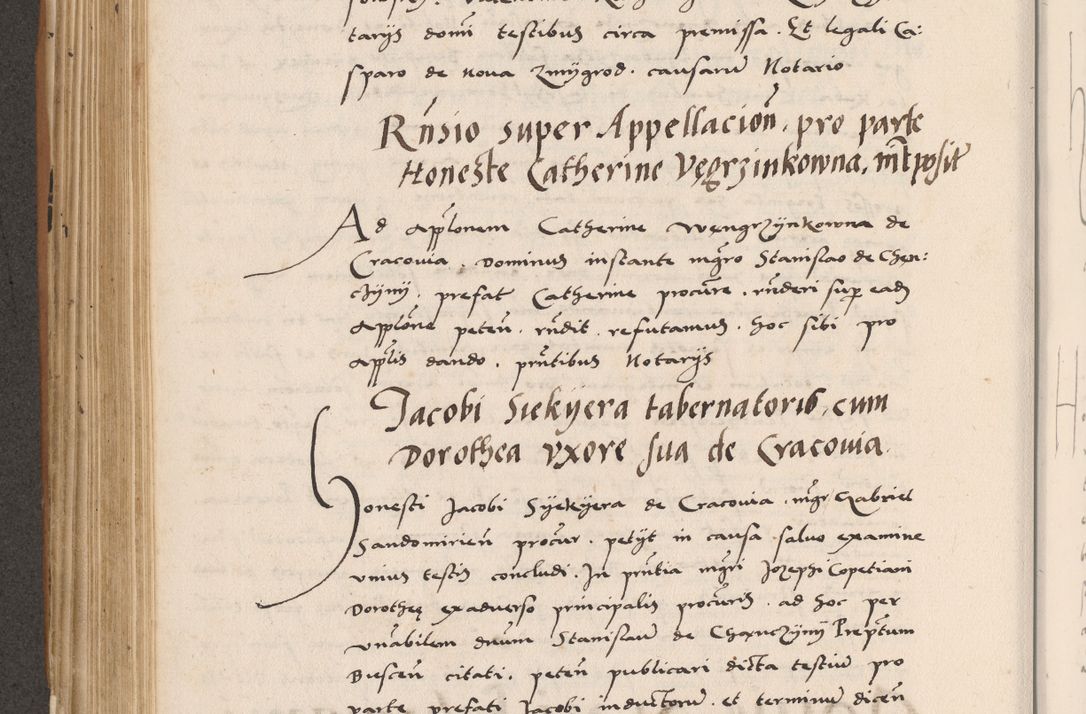 tarijs domi testibus circa premissa. Et legali Ca:
sparo de nova Zmijgrod. causarum Notario
Rnsio super Appellacion. pro parte
Honeste Catherine Vęgrzinkowna, interposit
Ad applonem Catherine Węngrzijnkowna de
Cracovia. Dominus instante mgro Stanislao de Chęn:
czijnij. prefat Catherine procure. rnderi sup eadem
applone peten. rndit. refutamus. hoc sibi pro
applis dando. prntibus Notarijs
Jacobi Siekijera tabernatoris, cum
Dorothea uxore sua de Cracovia.
Honesti Jacobi Sijekijera de Cracovia. mgr Gabriel
Sandomirien procur. petijt in causa salvo examine
unius testis concludi. In prntia mgri Jozephi Copetiani
Dorothę ex adverso principalis procuris. ad hoc per
vnabilem dnum Stanislaum de Chęnczijnij Preptum
Biescen citati. peten publicari dicta testium pro
parte prefati Jacobi inductorum. et terminum dicen